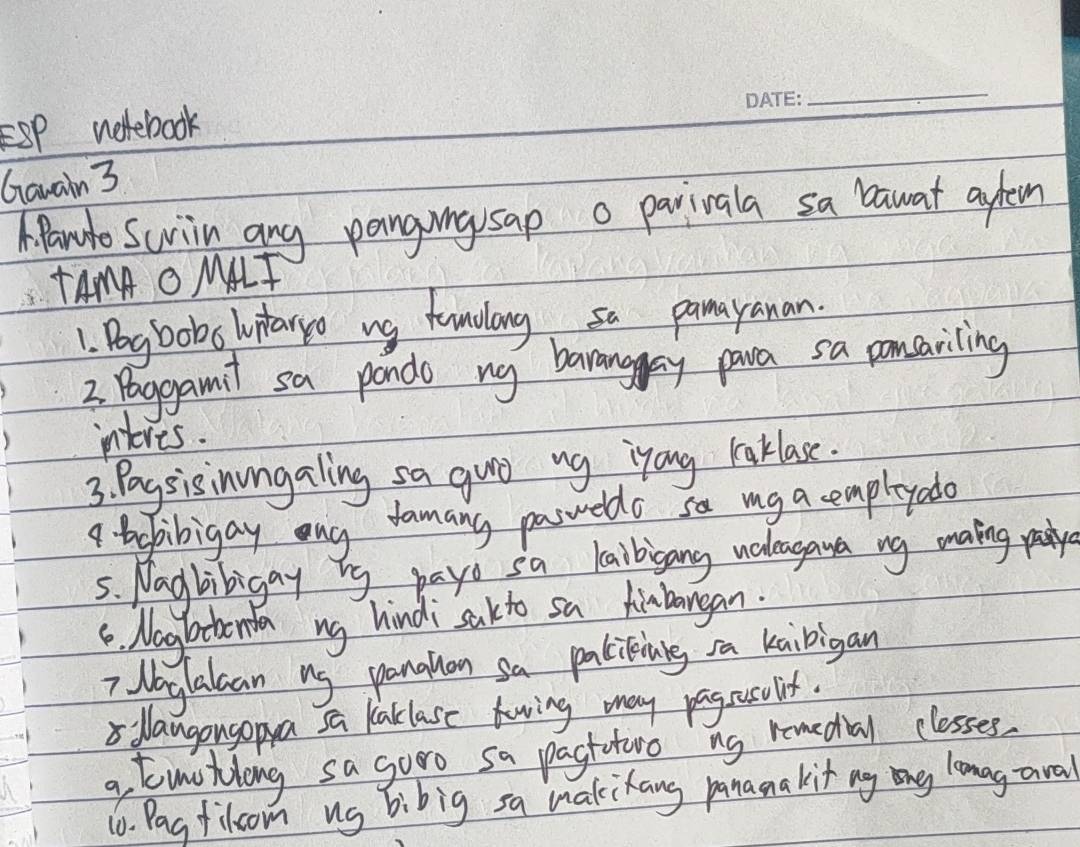 DATE:
ESP notebook
Gawain 3
A. Panuto Suriin ang pangungusap o parirala sa bawat aytem
TAMA O MALI
1. Pagboboluntaryo ng tumulong sa pamayanan.
2. Paggamit sa pondo ng baranggay para sa pansariling
interes.
3. Pagsisinungaling sa guro ng iyong kaklase.
4. bibigay ang tamang pasweldo sa mga empleyado
5. Nagbibigay ng payo sa kaibigang nakagawa ng maling pasya
6. Nagbebenta ng hindi sakto sa timbangan.
7 Naglalaan ng panahon sa pakikinig sa kaibigan
8. Nangongopya sa kaklase tuwing may pagsusulit.
9. Tumutulong sa guro sa pagtuturo ng remedial classes.
10. Pagtikom ng bibig sa makitang pananakit ng kamag-aral